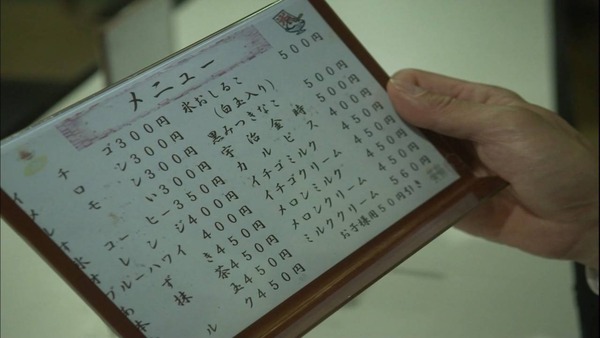 メニュー
イチゴ300円
メロン300円
モン300円
い300円
コーヒー350円
オレンジ400円
ブルーハワイ400円
ずき450円
抹茶450円
玉450円
ルク450円
氷おしるこ 500円
(白玉入り)
黒みつきなこ 500円
宇治金時 500円
カルピス 400円
イチゴミルク 450円
イチゴクリーム 450円
メロンミルク 450円
メロンクリーム 450円
ミルククリーム 560円
お子様用50円引き